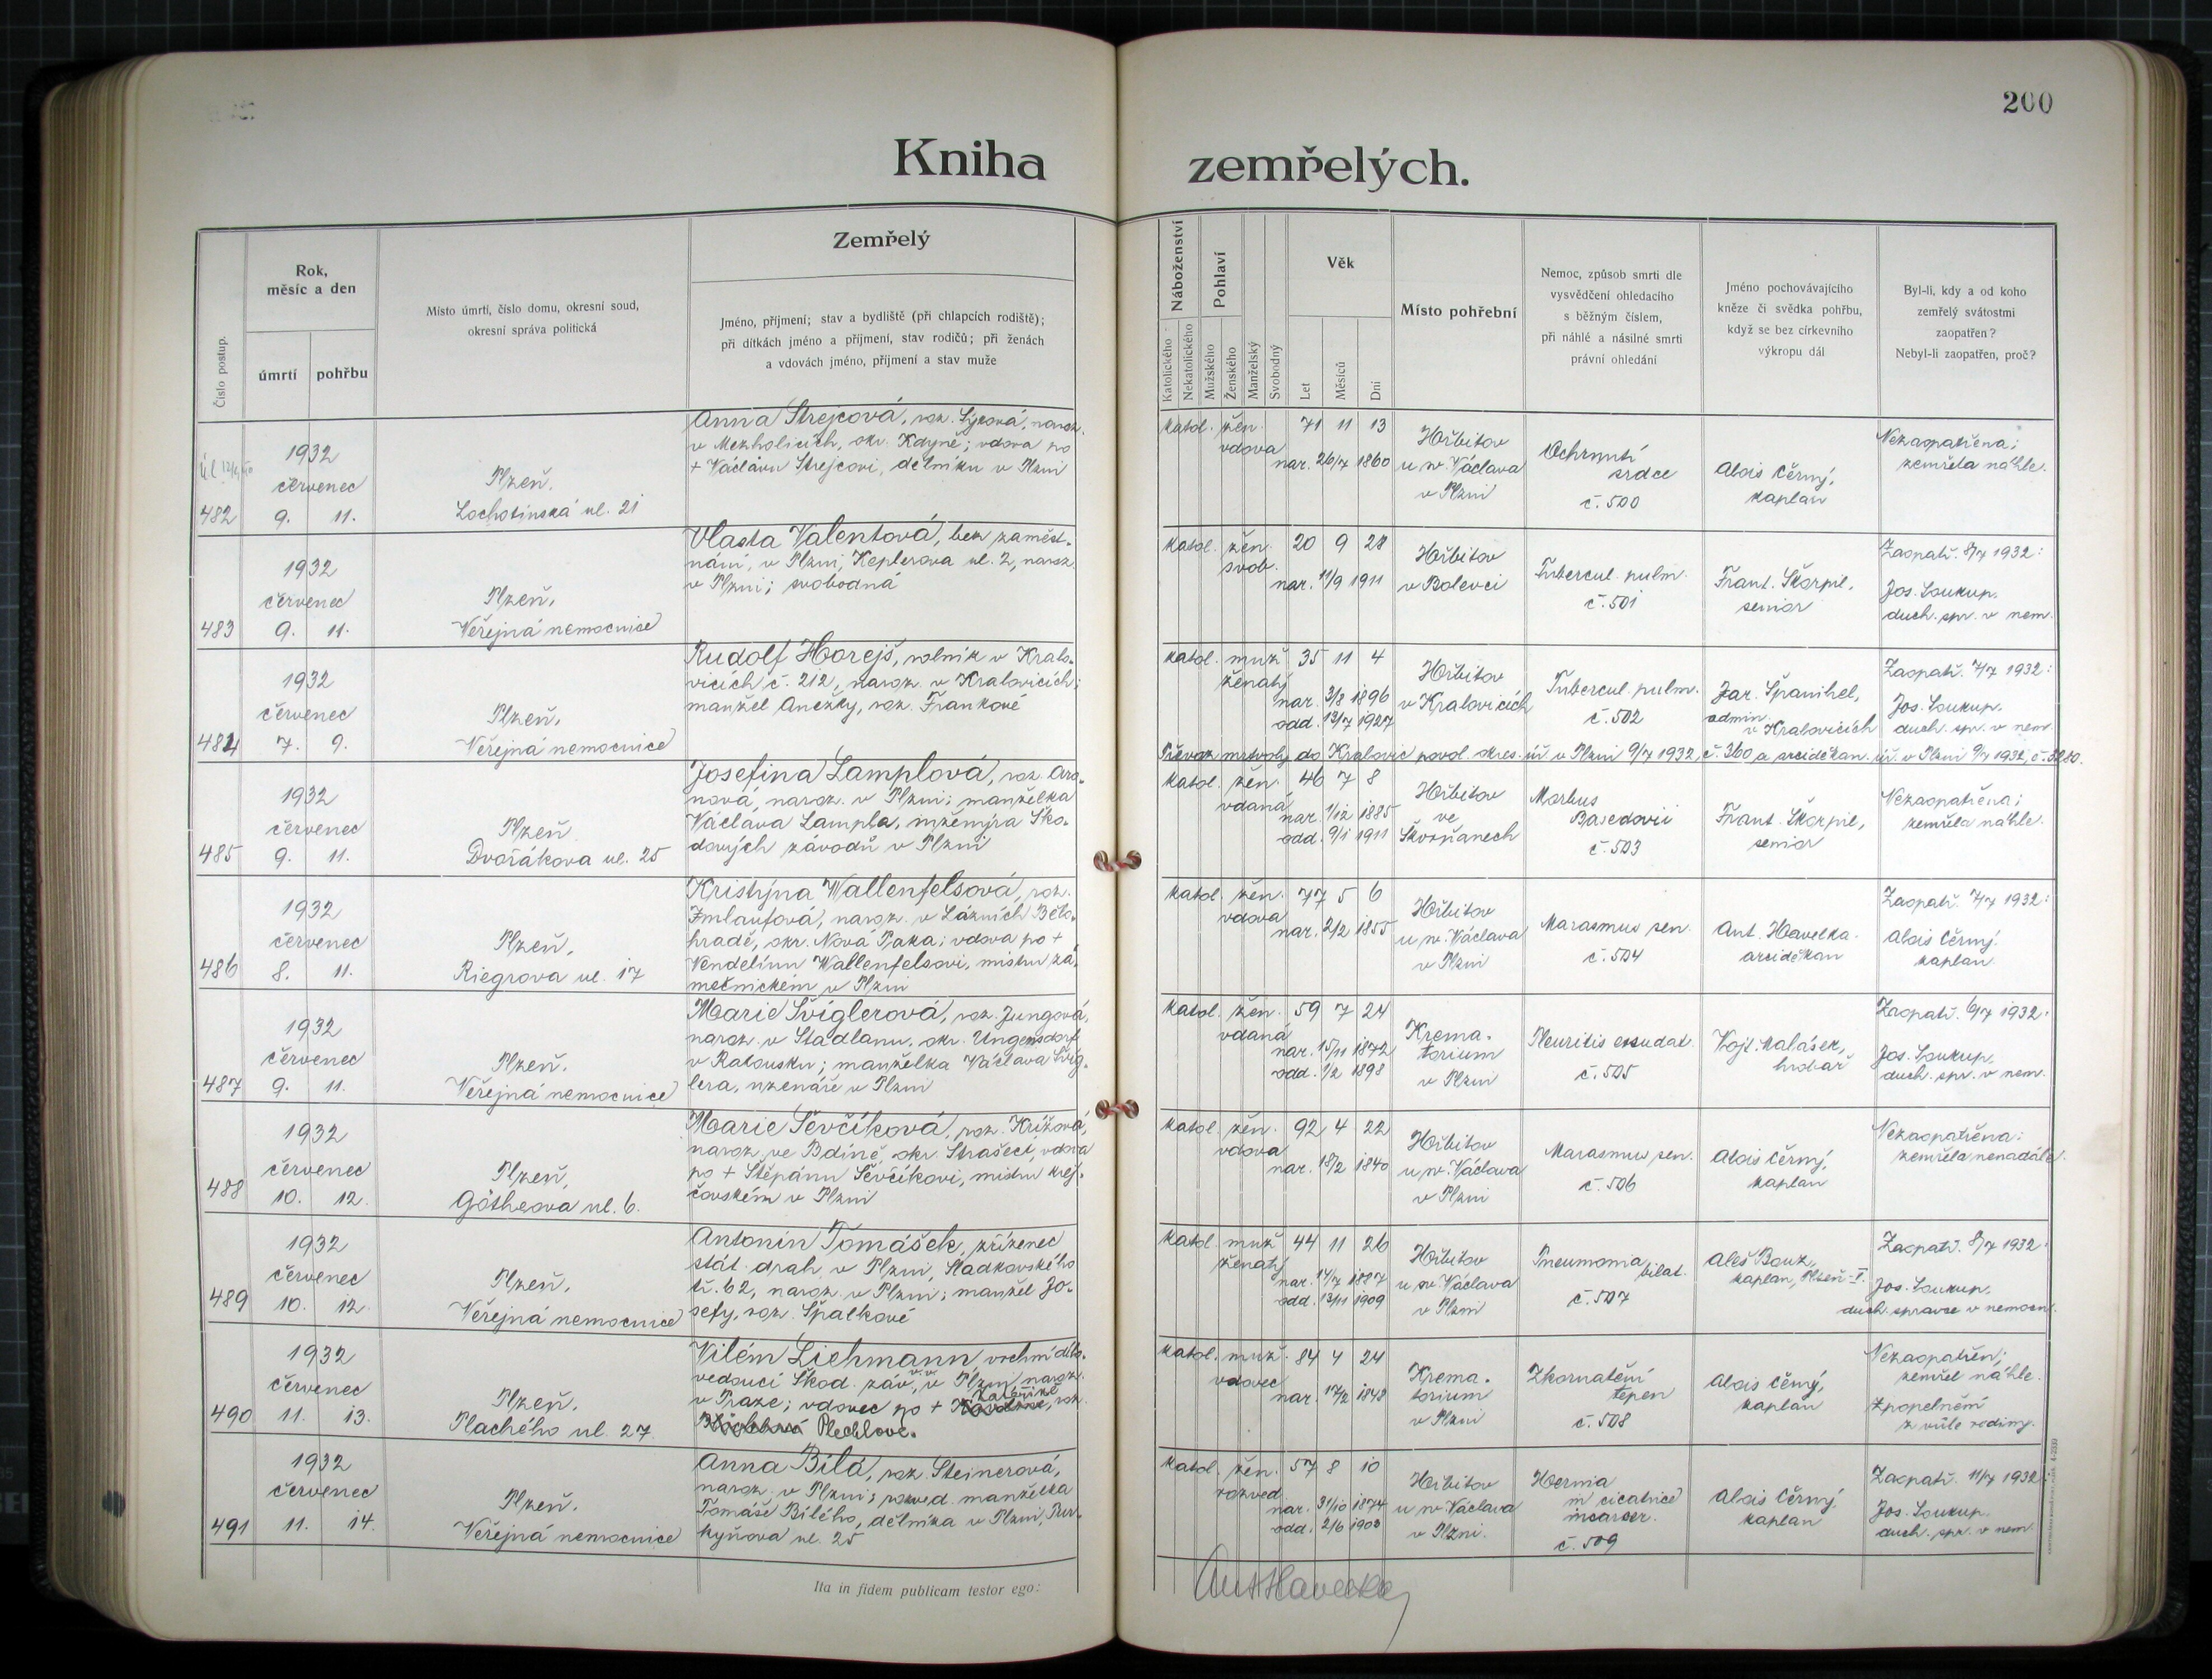 200
Kniha zemřelých.
Číslo postup.
Rok,
měsíc a den
úmrtí
pohřbu
Místo úmrtí, číslo domu, okresní soud,
okresní správa politická
Zemřelý
Jméno, příjmení; stav a bydliště (při chlapcích rodiště);
při dítkách jméno a příjmení, stav rodičů; při ženách
a vdovách jméno, příjmení a stav muže
Náboženství
Katolického
Nekatolického
Pohlaví
Mužského
Ženského
Manželský
Svobodný
Věk
Let
Měsíců
Dní
Místo pohřební
Nemoc, způsob smrti dle
vysvědčení ohledacího
s běžným číslem,
při náhlé a násilné smrti
právní ohledání
Jméno pochovávajícího
kněze či svědka pohřbu,
když se bez církevního
výkropu dál
Byl-li, kdy a od koho
zemřelý svátostmi
zaopatřen?
Nebyl-li zaopatřen, proč?
482
1932
červenec
9. 11.
Plzeň,
Lochotínská ul. 21
Anna Strejcová, roz. Sýkorová, naroz.
v Mezholicích, okr. Kdyně; vdova po
+ Václavu Strejcovi, dělníku v Plzni
katol. žen. 71 11 13
vdova
nar. 26/7 1860
Hřbitov
u sv. Václava
v Plzni
Ochrnutí
srdce
č. 500
Alois Černý,
kaplan
Nezaopatřena;
zemřela náhle.
483
1932
červenec
9. 11.
Plzeň,
Veřejná nemocnice
Vlasta Valentová, bez zaměst-
nání, v Plzni, Keplerova ul. 2, naroz.
v Plzni; svobodná
katol. žen. 20 9 28
svob.
nar. 11/9 1911
Hřbitov
v Bolevci
Tubercul. pulm.
č. 501
Frant. Škorpil,
senior
Zaopatř. 8/7 1932:
Jos. Soukup,
duch. spr. v nem.
484
1932
červenec
7. 9.
Plzeň,
Veřejná nemocnice
Rudolf Horejš, rolník v Kralo-
vicích č. 212, naroz. v Kralovicích;
manžel Anežky, roz. Frankové
katol. muž. 35 11 4
ženatý
nar. 3/8 1896
odd. 13/7 1927
Hřbitov
v Kralovicích
Tubercul. pulm.
č. 502
Jar. Španihel,
admin.
v Kralovicích
Zaopatř. 7/7 1932:
Jos. Soukup,
duch. spr. v nem.
Převoz mrtvoly do Kralovic povol. okres. úř. v Plzni 9/7 1932, č. 360 a arciděkan. úř. v Plzni 9/7 1932, č. 3280.
485
1932
červenec
9. 11.
Plzeň
Dvořákova ul. 25
Josefina Lamplová, roz. Aro-
nová, naroz. v Plzni; manželka
Václava Lampla, inženýra Ško-
dových závodů v Plzni
katol. žen. 46 7 8
vdaná
nar. 1/12 1885
odd. 9/1 1911
Hřbitov
ve
Škvrňanech
Morbus
Basedovii
č. 503
Frant. Škorpil,
senior
Nezaopatřena;
zemřela náhle.
486
1932
červenec
8. 11.
Plzeň,
Riegrova ul. 17
Kristýna Wallenfelsová, roz.
Imlaufová, naroz. v Lázních Bělo-
hradě, okr. Nová Paka; vdova po +
Vendelínu Wallenfelsovi, mistru zá-
mečnickém v Plzni
katol. žen. 77 5 6
vdova
nar. 2/2 1855
Hřbitov
u sv. Václava
v Plzni
Marasmus sen.
č. 504
Ant. Havelka
arciděkan
Zaopatř. 7/7 1932:
Alois Černý,
kaplan.
487
1932
červenec
9. 11.
Plzeň,
Veřejná nemocnice
Marie Šviglerová, roz. Jungová,
naroz. v Stadlanu, okr. Ungensdorf
v Rakousku; manželka Václava Švig-
lera, uzenáře v Plzni
katol. žen. 59 7 24
vdaná
nar. 15/11 1872
odd. 1/2 1898
Krema-
torium
v Plzni
Pleuritis exsudat.
č. 505
Vojt. Kalásek,
hrobař
Zaopatř. 6/7 1932:
Jos. Soukup,
duch. spr. v nem.
488
1932
červenec
10. 12.
Plzeň,
Götheova ul. 6.
Marie Ševčíková, roz. Křížová,
naroz. ve Bdíně, okr. Strašecí, vdova
po + Štěpánu Ševčíkovi, mistru krej-
čovském v Plzni
katol. žen. 92 4 22
vdova
nar. 18/2 1840
Hřbitov
u sv. Václava
v Plzni
Marasmus sen.
č. 506
Alois Černý,
kaplan
Nezaopatřena:
zemřela nenadále.
489
1932
červenec
10. 12.
Plzeň,
Veřejná nemocnice
Antonín Tomášek, zřízenec
stát. drah v Plzni, Sladkovského
tř. 62, naroz. v Plzni; manžel Jo-
sefy, roz. Špalkové
katol. muž 44 11 26
ženatý
nar. 14/7 1887
odd. 13/11 1909
Hřbitov
u sv. Václava
v Plzni
Pneumonia bilat.
č. 507
Aleš Bouz,
kaplan, Plzeň-I.
Zaopatř. 8/7 1932:
Jos. Soukup,
duch. správce v nemocn.
490
1932
červenec
11. 13.
Plzeň,
Plachého ul. 27
Vilém Liehmann, vrchní dílo-
vedoucí Škod. záv. v. v. v Plzni, naroz.
v Praze; vdovec po + Kateřině, roz.
Plechlové.
katol. muž. 84 4 24
vdovec
nar. 17/2 1848
Krema-
torium
v Plzni
Zkornatění
tepen
č. 508
Alois Černý,
kaplan
Nezaopatřen;
zemřel náhle.
Zpopelnění
z vůle rodiny.
491
1932
červenec
11. 14.
Plzeň,
Veřejná nemocnice
Anna Bílá, roz. Steinerová,
naroz. v Plzni; rozved. manželka
Tomáše Bílého, dělníka v Plzni, Pur-
kyňova ul. 25
katol. žen. 57 8 10
rozved.
nar. 31/10 1874
odd. 2/6 1903
Hřbitov
u sv. Václava
v Plzni.
Hernia
in cicatrice
incarcer.
č. 509
Alois Černý,
kaplan
Zaopatř. 11/7 1932:
Jos. Soukup,
duch. spr. v nem.
Ita in fidem publicam testor ego:
Ant Havelka